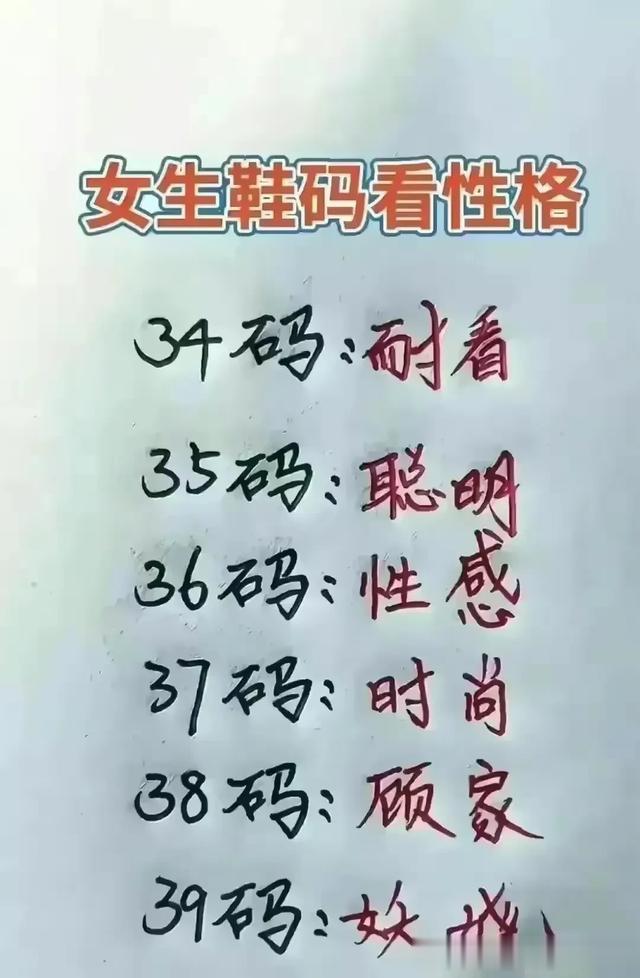 女生鞋码看性格
34码:耐看
35码:聪明
36码:性感
37码:时尚
38码:顾家
39码:妖